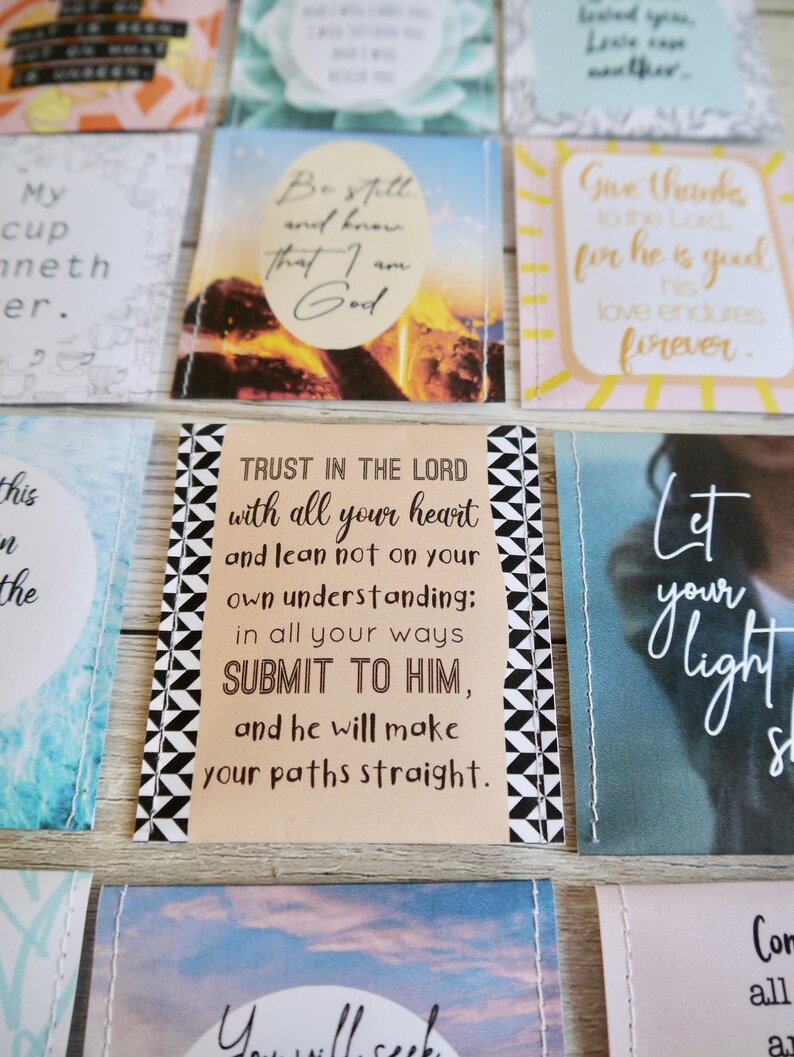 WHAT IS SEEN,
BUT ON WHAT
IS UNSEEN.
I WILL SUSTAIN YOU
AND I WILL
RESCUE YOU
loved you,
Love one
another.
My
cup
nneth
er.
Be still
and know
that I am
God
Give thanks
to the Lord,
for he is good
his
love endures
forever.
this
in
the
TRUST IN THE LORD
with all your heart
and lean not on your
own understanding;
in all your ways
SUBMIT TO HIM,
and he will make
your paths straight.
Let
your
light
sh
You will seek
Com
all
an